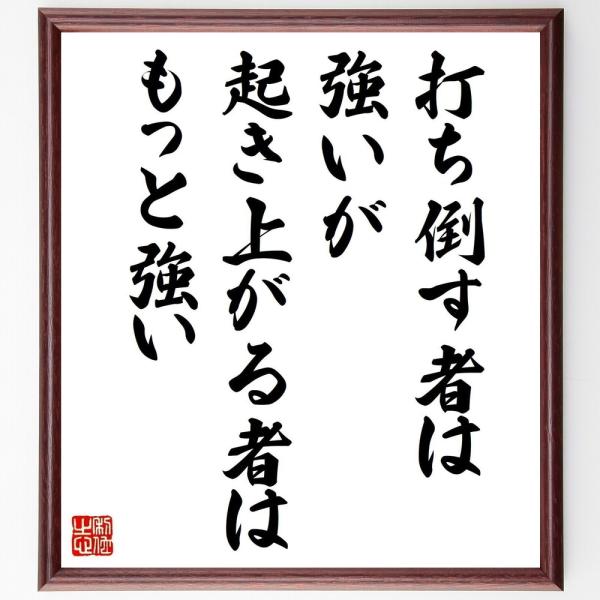 打ち倒す者は
強いが
起き上がる者は
もっと強い